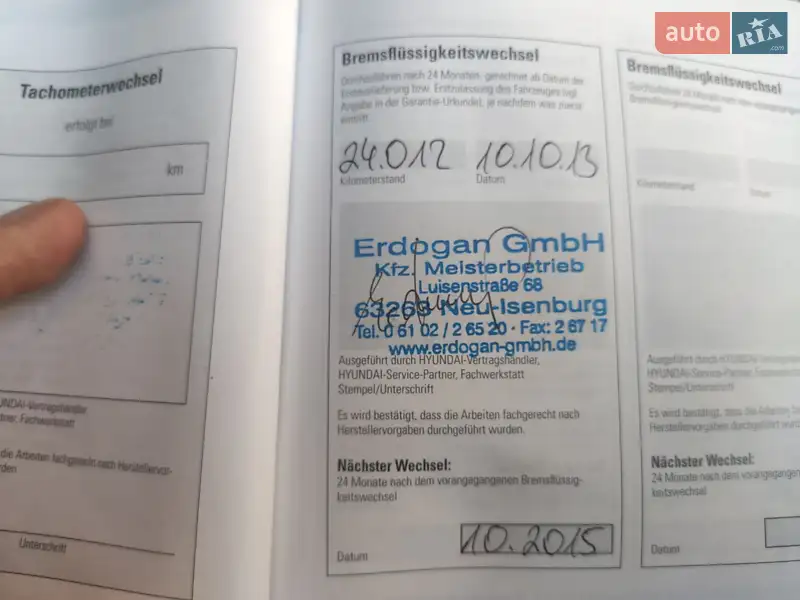 auto RIA .com
Tachometerwechsel
erfolgt bei
km
HYUNDAI-Vertragshändler
Fachwerkstatt
die Arbeiten fachgerecht nach Herstellervor-
Unterschrift
Bremsflüssigkeitswechsel
Durchzuführen nach 24 Monaten, gerechnet ab Datum der
Erstauslieferung bzw. Erstzulassung des Fahrzeuges (vgl.
Angabe in der Garantie-Urkunde), je nachdem was zuerst
eintritt.
24.012 10.10.13
Kilometerstand Datum
Erdogan GmbH
Kfz. Meisterbetrieb
Luisenstraße 68
63263 Neu-Isenburg
Tel. 0 61 02 / 2 65 20 · Fax: 2 67 17
www.erdogan-gmbh.de
Ausgeführt durch HYUNDAI-Vertragshändler,
HYUNDAI-Service-Partner, Fachwerkstatt
Stempel/Unterschrift
Es wird bestätigt, dass die Arbeiten fachgerecht nach
Herstellervorgaben durchgeführt wurden.
Nächster Wechsel:
24 Monate nach dem vorangegangenen Bremsflüssig-
keitswechsel
Datum 10.2015
Bremsflüssigkeitswechsel
Kilometerstand Datum
Ausgeführt durch HYUNDAI-Vertragshändler,
HYUNDAI-Service-Partner, Fachwerkstatt
Stempel/Unterschrift
Es wird bestätigt, dass die Arbeiten
Herstellervorgaben durchgeführt
Nächster Wechsel:
24 Monate nach dem vorangegangenen
keitswechsel
Datum